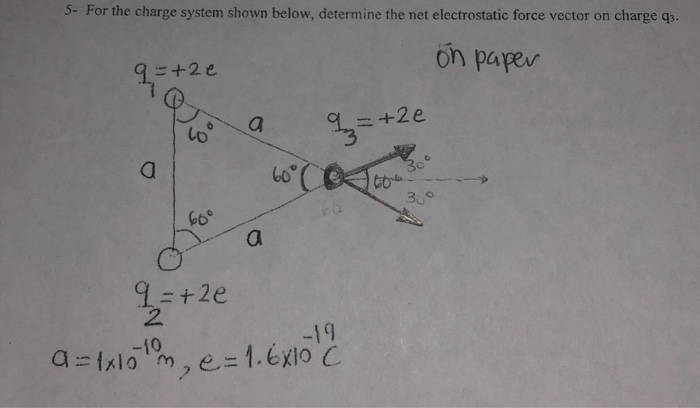 5- For the charge system shown below, determine the net electrostatic force vector on charge q₃.
on paper
q₁=+2e
60°
a
q₃=+2e
a
60°
60°
30°
30°
60°
a
q₂=+2e
a=1x10⁻¹⁰m, e=1.6x10⁻¹⁹C